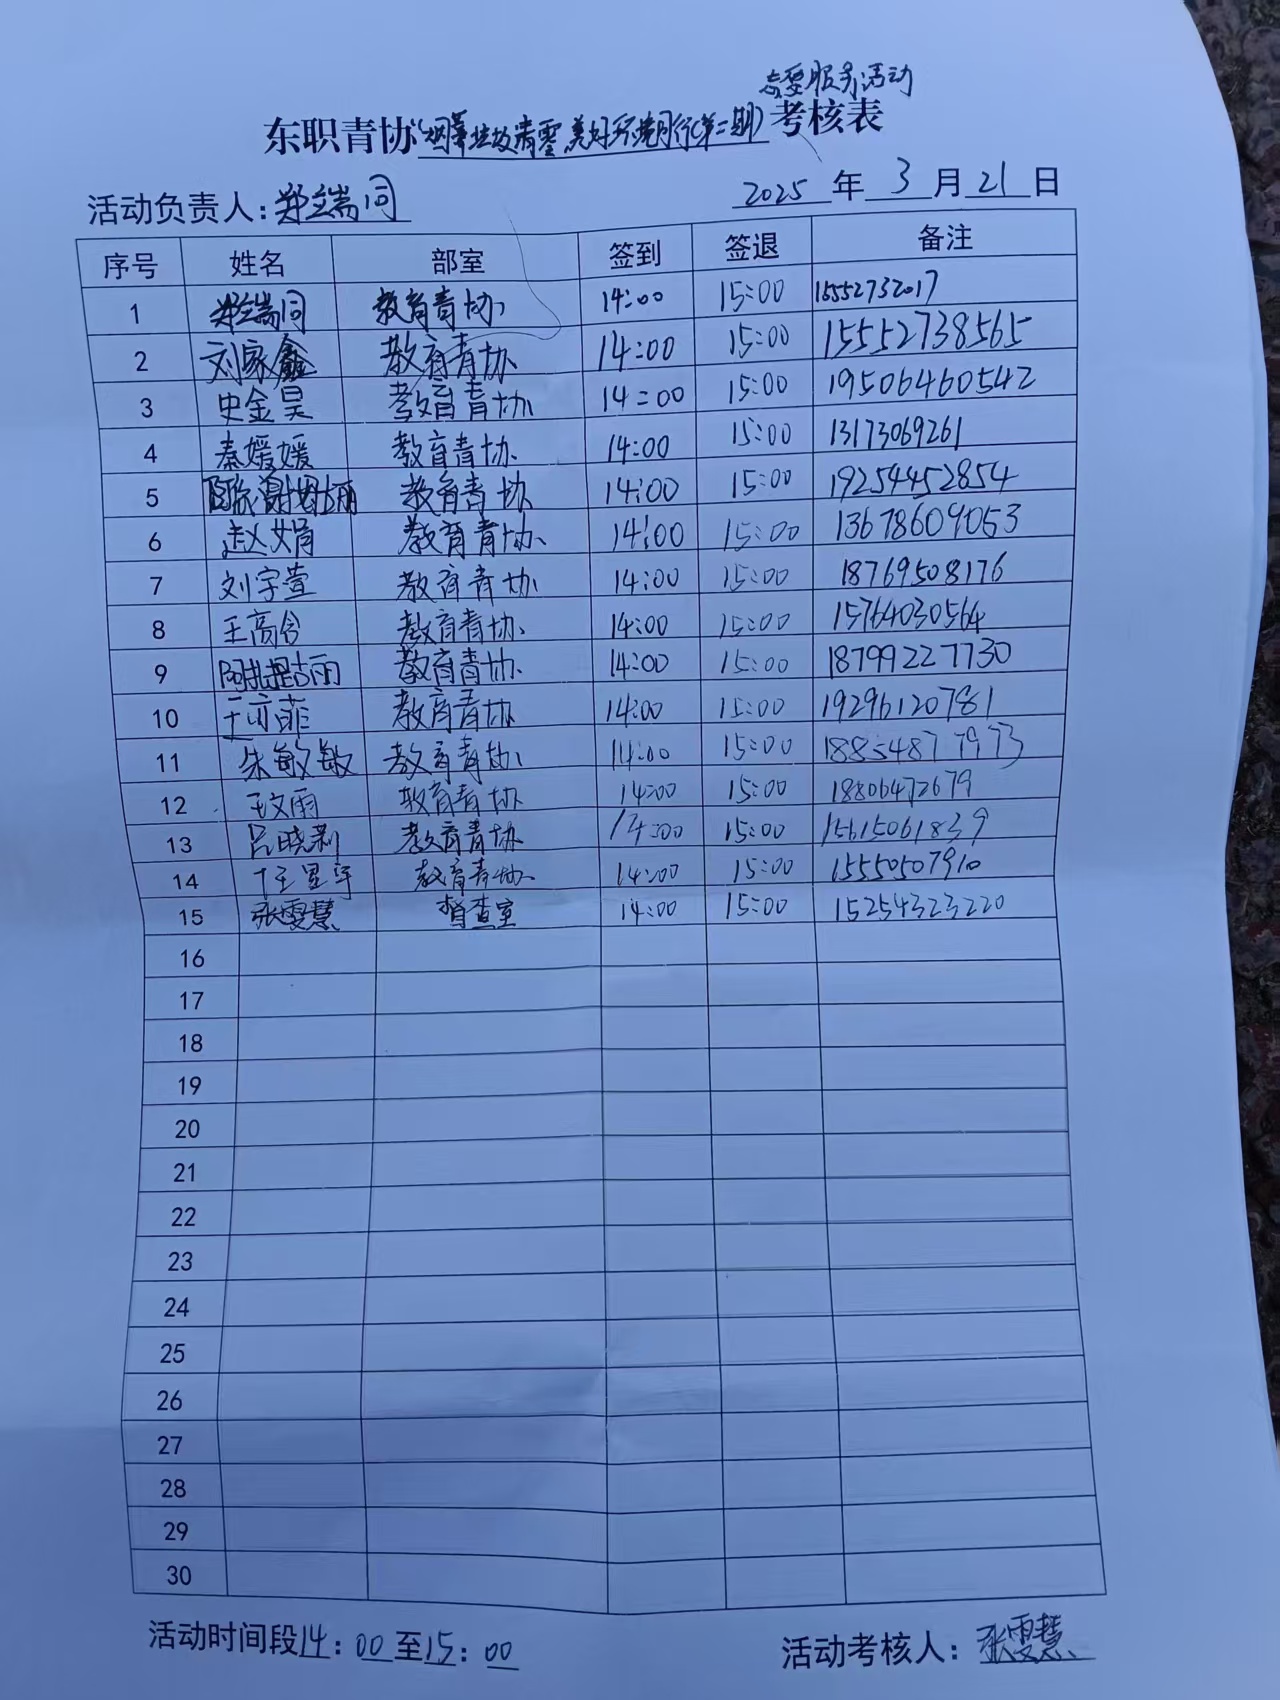 志愿服务活动
东职青协“烟蒂垃圾清零 美好环境同行(第二期)考核表
活动负责人：郑端同 2025 年 3 月 21 日
序号 姓名 部室 签到 签退 备注
1 郑端同 教育青协 14:00 15:00 15552732017
2 刘家鑫 教育青协 14:00 15:00 15552738565
3 史金昊 教育青协 14:00 15:00 19506460542
4 秦媛媛 教育青协 14:00 15:00 13173069261
5 教育青协 14:00 15:00 19254452854
6 赵娟 教育青协 14:00 15:00 13678609053
7 刘宇萱 教育青协 14:00 15:00 18769508176
8 王高含 教育青协 14:00 15:00 15764030564
9 教育青协 14:00 15:00 18799227730
10 王可菲 教育青协 14:00 15:00 19296120781
11 朱敏敏 教育青协 14:00 15:00 18854877973
12 王文雨 教育青协 14:00 15:00 18806472679
13 吕晓莉 教育青协 14:00 15:00 15615061839
14 教育青协 14:00 15:00 15550507910
15 张雯慧 督查室 14:00 15:00 15254323220
16
17
18
19
20
21
22
23
24
25
26
27
28
29
30
活动时间段14：00至15：00 活动考核人：张雯慧